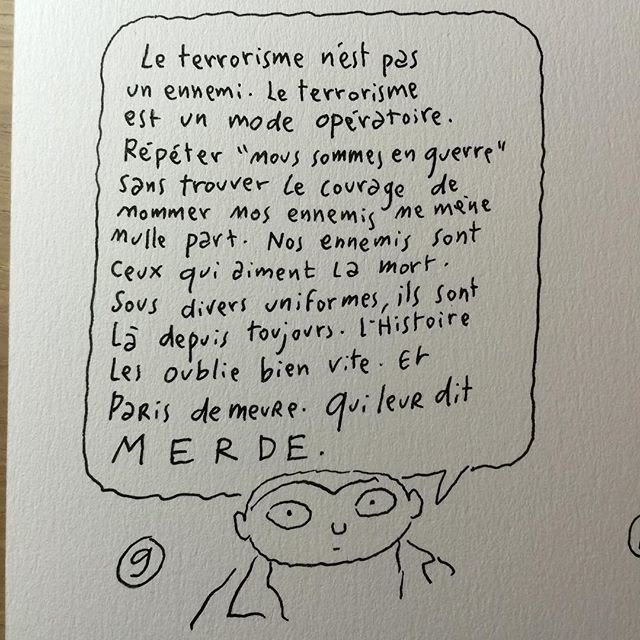 Le terrorisme n'est pas
un ennemi. Le terrorisme
est un mode opératoire.
Répéter "nous sommes en guerre"
sans trouver le courage de
nommer nos ennemis ne mène
nulle part. Nos ennemis sont
ceux qui aiment la mort.
Sous divers uniformes, ils sont
là depuis toujours. L'Histoire
les oublie bien vite. Et
PARIS demeure. qui leur dit
MERDE.
9